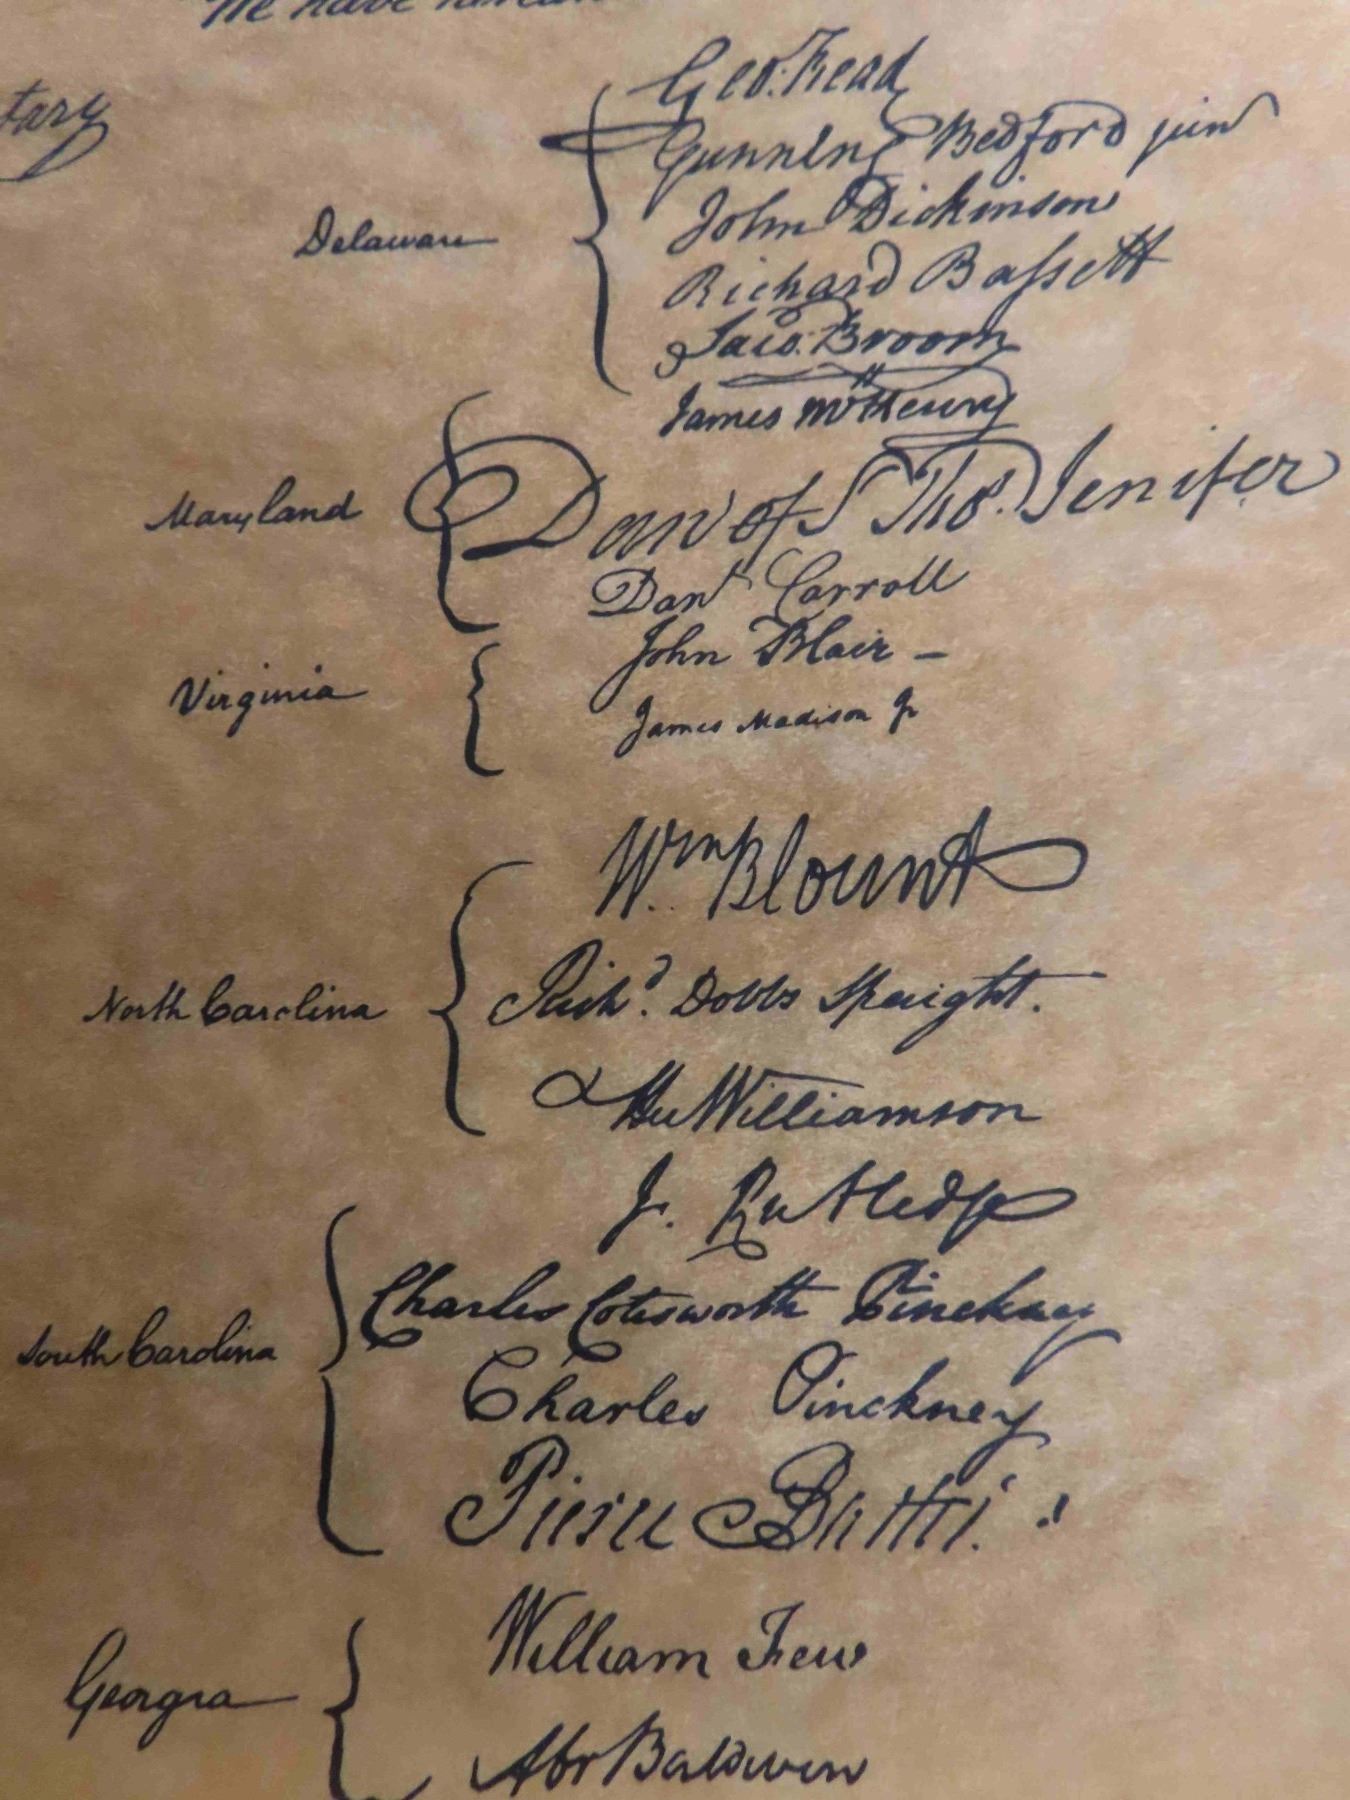 We have
tary
Geo: Read
Gunning Bedford jun
John Dickinson
Delaware
Richard Bassett
Jaco: Broom
James McHenry
Maryland
Dan of St Thos. Jenifer
Danl Carroll
John Blair –
Virginia
James Madison Jr
Wm Blount
North Carolina
Richd. Dobbs Spaight.
Hu Williamson
J. Rutledge
Charles Cotesworth Pinckney
South Carolina
Charles Pinckney
Pierce Butler.
William Few
Georgia
Abr Baldwin